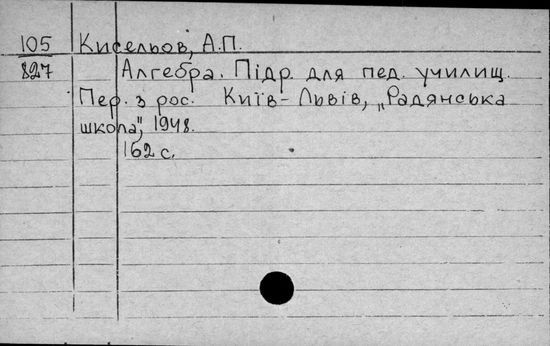 105 Кисельов, А.П.
827 Алгебра. Підр. для пед. училищ.
Пер. з рос. Київ-Львів, „Радянська
школа", 1948.
162 с.